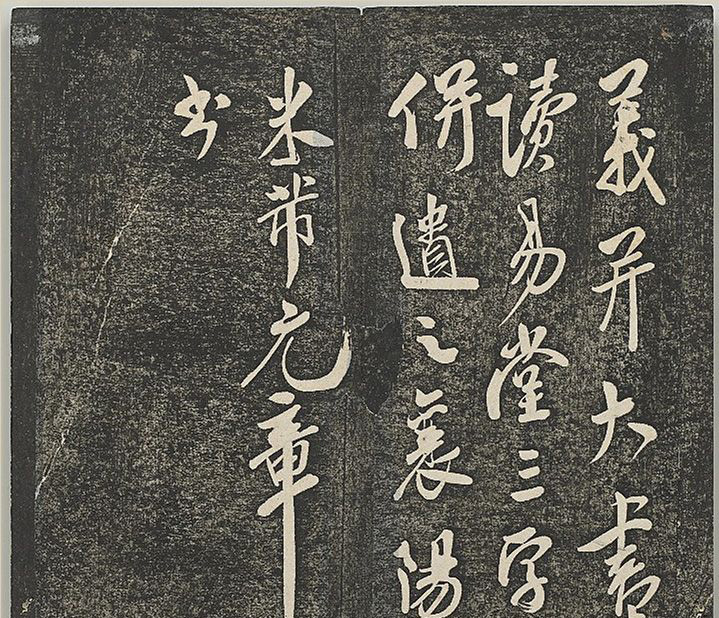 義并大書
讀易堂三字
併遺之襄陽
米芾元章
书